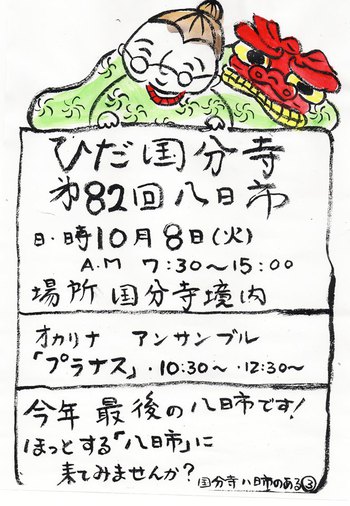 ひだ国分寺
第82回八日市
日・時10月8日(火)
A.M 7:30～15:00
場所 国分寺境内
オカリナ アンサンブル
「プラナス」・10:30～・12:30～
今年最後の八日市です!
ほっとする「八日市」に
来てみませんか?
国分寺八日市のある③